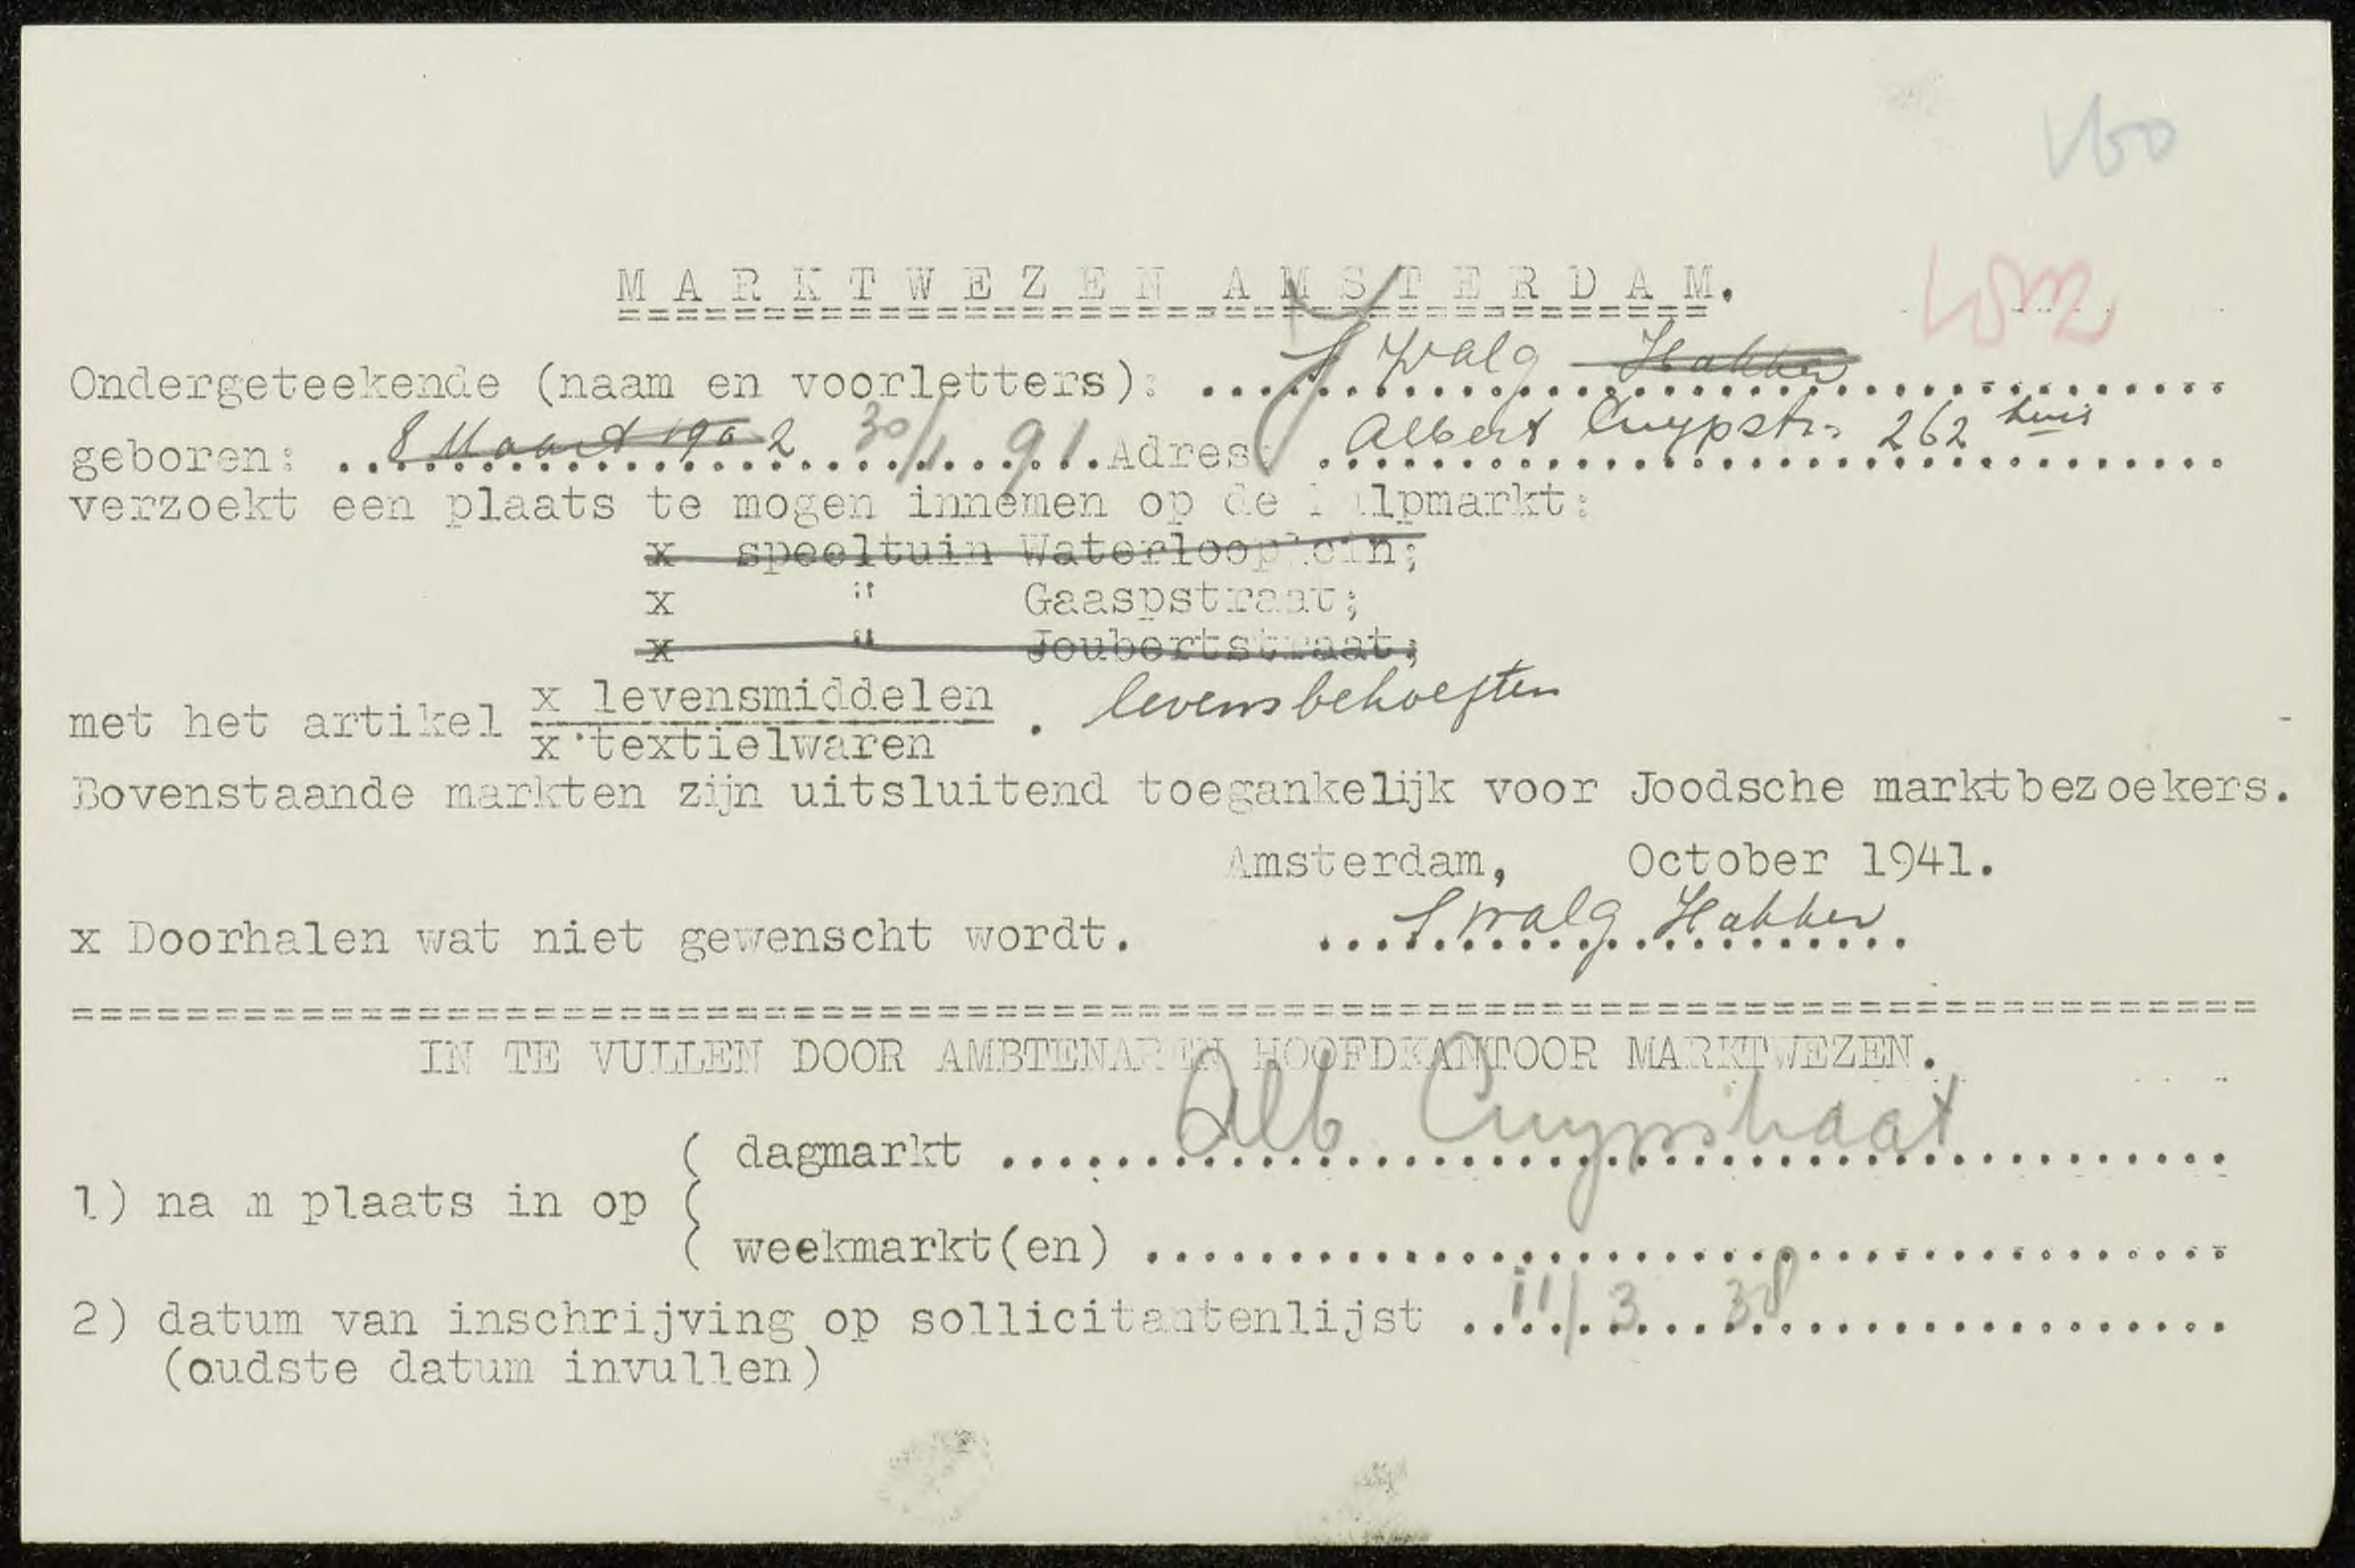 M A R K T W E Z E N  A M S T E R D A M.
Ondergeteekende (naam en voorletters): S Walg Hakker
geboren: 8 Maart 1902 30/1 91. Adres: Albert Cuypstr. 262 huis
verzoekt een plaats te mogen innemen op de hulpmarkt:
x speeltuin Waterlooplein;
x " Gaaspstraat;
x " Joubertstraat;
met het artikel x levensmiddelen . levensbehoeften
x textielwaren
Bovenstaande markten zijn uitsluitend toegankelijk voor Joodsche marktbezoekers.
Amsterdam, October 1941.
x Doorhalen wat niet gewenscht wordt. S Walg Hakker
IN TE VULLEN DOOR AMBTENAREN HOOFDKANTOOR MARKTWEZEN.
( dagmarkt Alb Cuypstraat
1) na m plaats in op (
( weekmarkt(en)
2) datum van inschrijving op sollicitantenlijst 11/3 38
(oudste datum invullen)